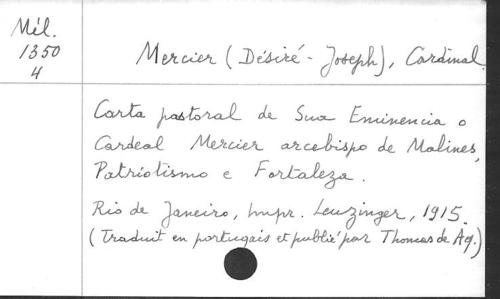 Mél.
1350
4
Mercier (Désiré-Joseph), Cardinal.
Carta pastoral de Sua Eminencia o
Cardeal Mercier arcebispo de Malines,
Patriotismo e Fortaleza.
Rio de Janeiro, Impr. Leuzinger, 1915.
(Traduit en portugais et publié par Thomas de Aq.)